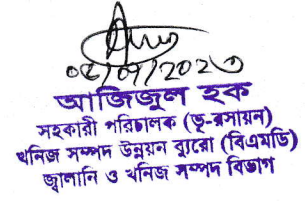 ০৫/০৭/২০২৩
আজিজুল হক
সহকারী পরিচালক (ভূ-রসায়ন)
খনিজ সম্পদ উন্নয়ন ব্যুরো (বিএমডি)
জ্বালানি ও খনিজ সম্পদ বিভাগ